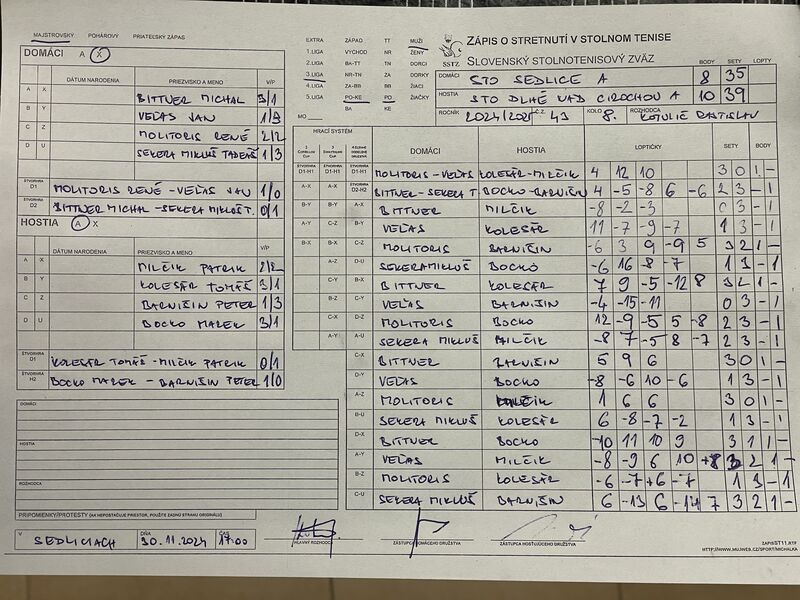 MAJSTROVSKÝ POHÁROVÝ PRIATEĽSKÝ ZÁPAS
DOMÁCI A X
DÁTUM NARODENIA PRIEZVISKO A MENO V/P
A X BITTNER MICHAL 3/1
B Y VEĽAS JAN 1/3
C Z MOLITORIS RENÉ 2/2
D U SEKERA MIKLUŠ TADEÁŠ 1/3
ŠTVORHRA D1 MOLITORIS RENÉ - VEĽAS JAN 1/0
ŠTVORHRA D2 BITTNER MICHAL - SEKERA MIKLOŠ T. 0/1
HOSTIA A X
DÁTUM NARODENIA PRIEZVISKO A MENO V/P
A X MILČIK PATRIK 2/2
B Y KOLESÁR TOMÁŠ 3/1
C Z BARNIŠIN PETER 1/3
D U BOCKO MAREK 3/1
ŠTVORHRA D1 KOLESÁR TOMÁŠ - MILČIK PATRIK 0/1
ŠTVORHRA H2 BOCKO MAREK - BARNIŠIN PETER 1/0
DOMÁCI
HOSTIA
ROZHODCA
PRIPOMIENKY/PROTESTY (AK NEPOSTAČUJE PRIESTOR, POUŽITE ZADNÚ STRANU ORIGINÁLU)
V SEDLICIACH DŇA 30.11.2024 ČAS 17:00
EXTRA ZÁPAD. TT MUŽI
1.LIGA VÝCHOD NR ŽENY
2.LIGA BA-TT TN DORCI
3.LIGA NR-TN ZA DORKY
4.LIGA ZA-BB BB ŽIACI
5.LIGA PO-KE PO ŽIAČKY
MO BA KE
SSTZ
ZÁPIS O STRETNUTÍ V STOLNOM TENISE
SLOVENSKÝ STOLNOTENISOVÝ ZVÄZ
BODY SETY LOPTY
DOMÁCI STO SEDLICE A 8 35
HOSTIA STO DLHÉ NAD CIROCHOU A 10 39
ROČNÍK 2024/2025 Č. 43 KOLO 8. ROZHODCA KOTULIČ RASTISLAV
HRACÍ SYSTÉM
DOMÁCI HOSTIA LOPTIČKY SETY BODY
ŠTVORHRA D1-H1 ŠTVORHRA D1-H1 ŠTVORHRA D1-H1 MOLITORIS-VEĽAS KOLESÁR-MILČIK 4 12 10 3 0 1 -
A-X A-X ŠTVORHRA D2-H2 BITTNER-SEKERA T. BOCKO-BARNIŠIN 4 -5 -8 6 -6 2 3 - 1
B-Y B-Y A-X BITTNER MILČIK -8 -2 -3 0 3 - 1
A-Y C-Z B-Y VEĽAS KOLESÁR 11 -7 -9 -7 1 3 - 1
B-X B-X C-Z MOLITORIS BARNIŠIN -6 3 9 -9 5 3 2 1 -
A-Z D-U SEKERA MIKLUŠ BOCKO -6 16 -8 -7 1 3 - 1
C-Y B-X BITTNER KOLESÁR 7 9 -5 -12 8 3 2 1 -
B-Z C-Y VEĽAS BARNIŠIN -4 -15 -11 0 3 - 1
C-X D-Z MOLITORIS BOCKO 12 -9 -5 5 -8 2 3 - 1
A-Y A-U SEKERA MIKLUŠ MILČIK -8 7 -5 8 -7 2 3 - 1
C-X BITTNER BARNIŠIN 5 9 6 3 0 1 -
D-Y VEĽAS BOCKO -8 -6 10 -6 1 3 - 1
A-Z MOLITORIS MILČIK 1 6 6 3 0 1 -
B-U SEKERA MIKLUŠ KOLESÁR 6 -8 -7 -2 1 3 - 1
D-X BITTNER BOCKO -10 11 10 9 3 1 1 -
A-Y VEĽAS MILČIK -8 -9 6 10 +8 3 2 1 -
B-Z MOLITORIS KOLESÁR -6 -7 +6 -7 1 3 - 1
C-U SEKERA MIKLUŠ BARNIŠIN 6 -13 6 -14 7 3 2 1 -
HLAVNÝ ROZHODCA ZÁSTUPCA DOMÁCEHO DRUŽSTVA ZÁSTUPCA HOSŤUJÚCEHO DRUŽSTVA
ZAPISST11.RTF
HTTP://WWW.MUJWEB.CZ/SPORT/MICHALKA